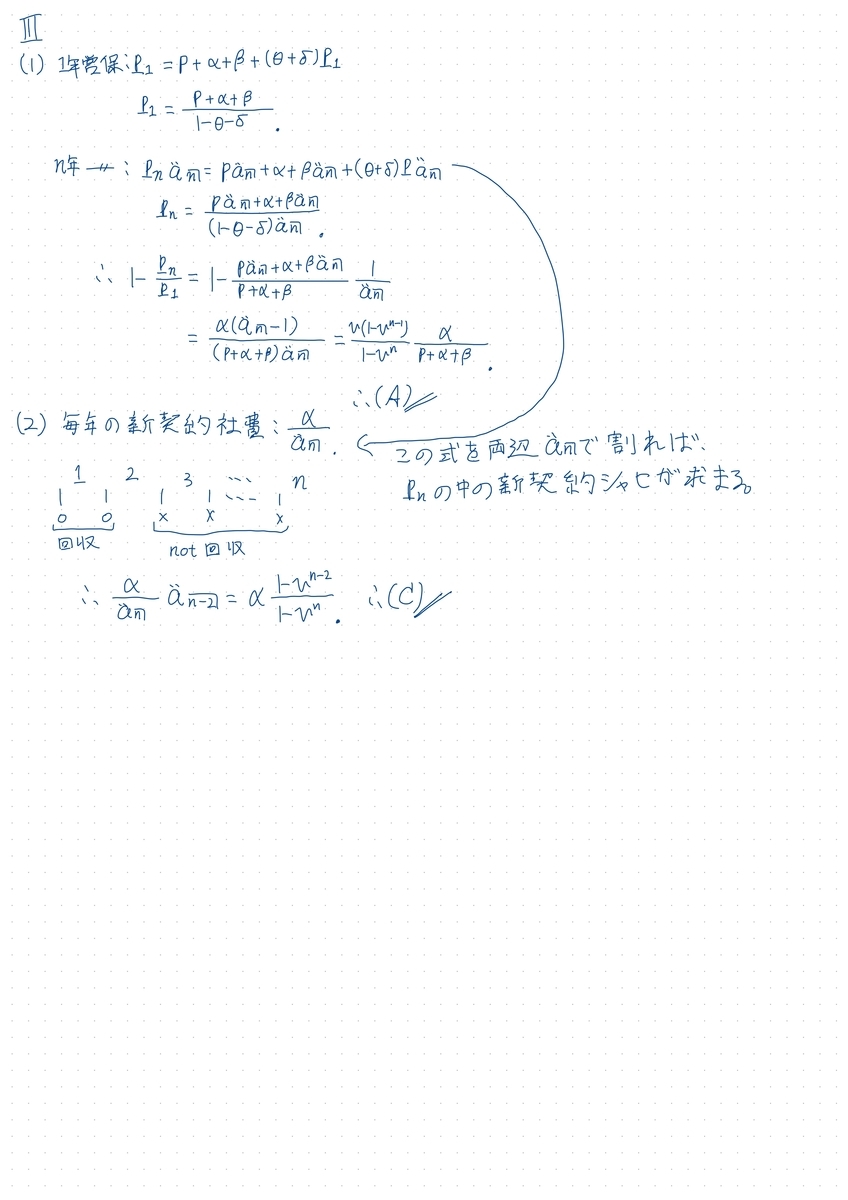 III
(1) 1年営保: P₁ = p + α + β + (θ+δ)P₁
P₁ = (p+α+β)/(1-θ-δ) .
n年 〃 : Pₙ ä_n̅| = p ä_n̅| + α + β ä_n̅| + (θ+δ)P ä_n̅|
Pₙ = (p ä_n̅| + α + β ä_n̅|)/((1-θ-δ) ä_n̅|) .
∴ 1 - Pₙ/P₁ = 1 - (p ä_n̅| + α + β ä_n̅|)/(p+α+β) 1/ä_n̅|
= α(ä_n̅| - 1)/((p+α+β) ä_n̅|) = v(1-vⁿ⁻¹)/(1-vⁿ) α/(p+α+β) .
∴(A)
(2) 毎年の新契約社費: α/ä_n̅| .
この式を両辺 ä_n̅| で割れば、
Pₙの中の新契約シャヒが求まる。
1 2 3 ... n
○ ○ × × ×
回収 not 回収
∴ α/ä_n̅| ä_n-2| = α (1-vⁿ⁻²)/(1-vⁿ) . ∴(C)